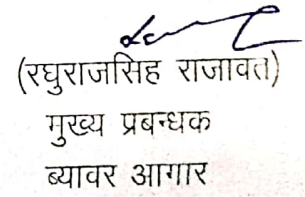 (रघुराजसिह राजावत)
मुख्य प्रबन्धक
ब्यावर आगार